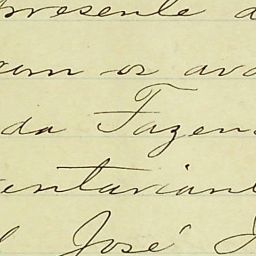 presente d
ram os ava
da Fazen
entariant
José